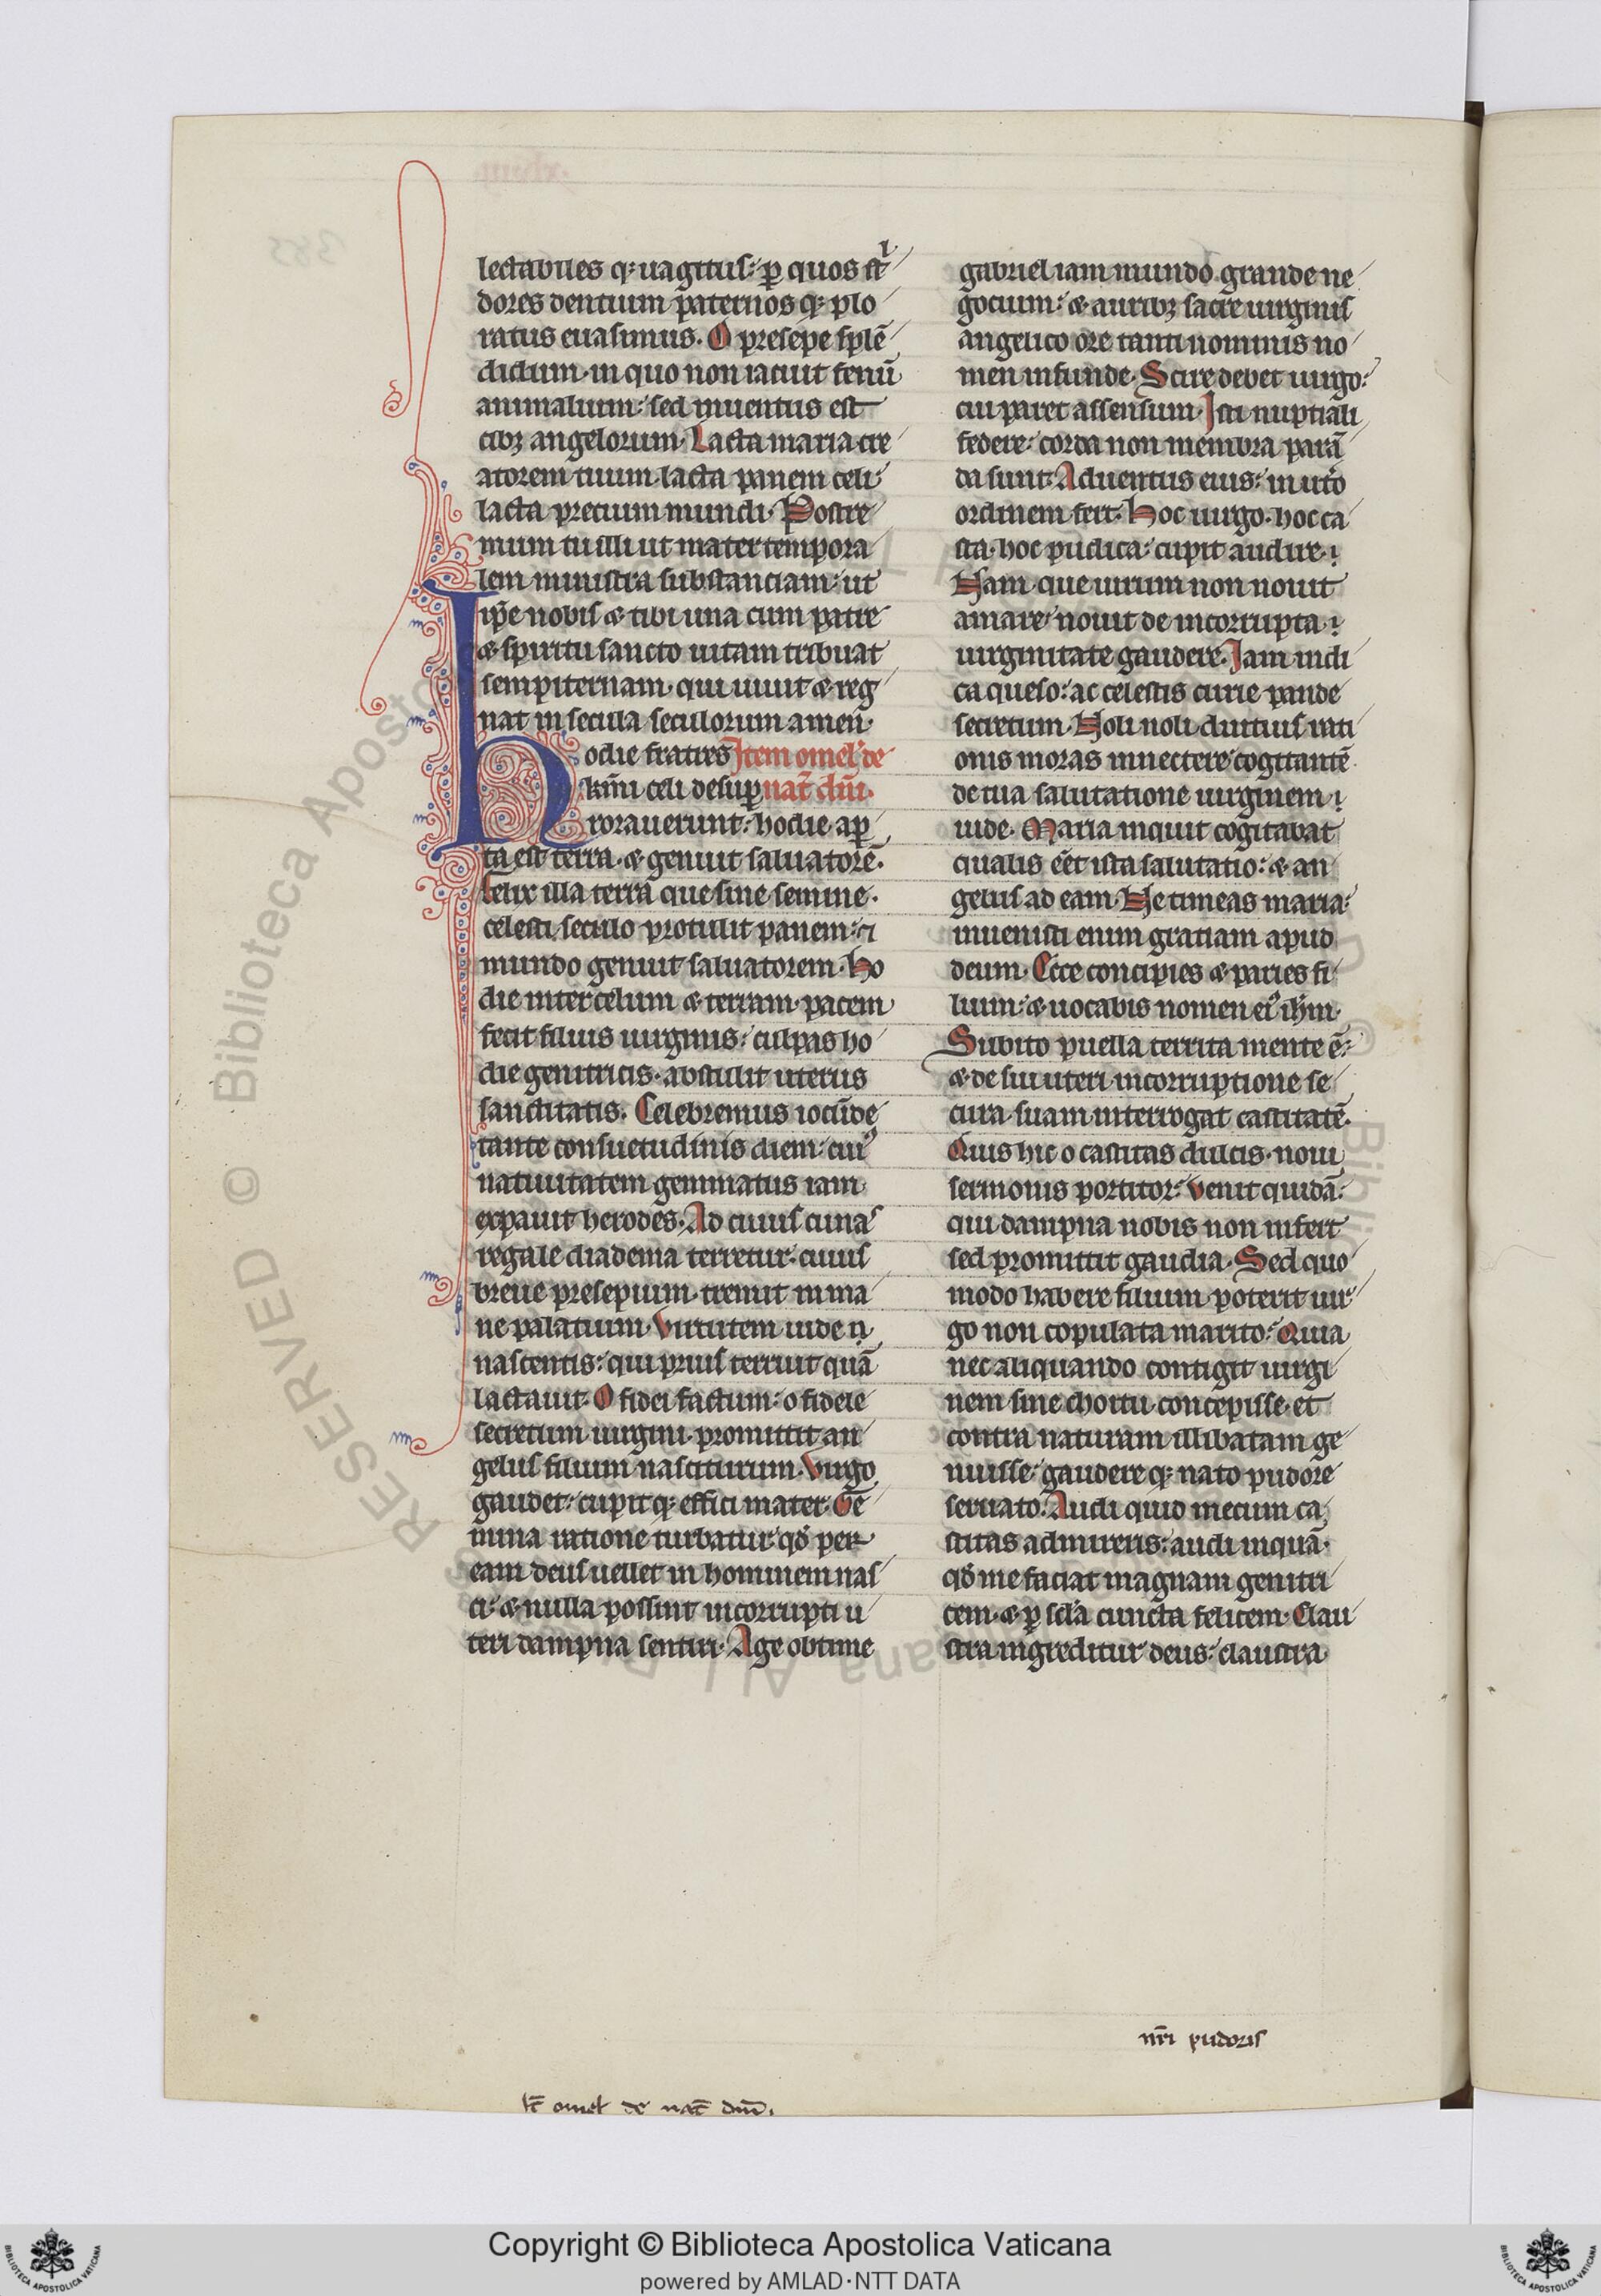 lectabiles q; uagitus: ꝑ quos st̅ı
dores dentium paternos q; plo
ratus euasimus. O presepe sple̅
didum. in quo non iacuit fenu̅
animalium: sed inuentus est
cibꝫ angelorum. Lacta maria cre
atorem tuum. lacta panem celi:
lacta precium mundi. Postre
mum tu illi ut mater tempora
lem ministra substanciam: ut
ip̅e nobis & tibi una cum patre
& spiritu sancto uitam tribuat
sempiternam. qui uiuit & reg
nat in secula seculorum amen.
Hodie fratres Item omel' de
km̅i celi desuꝑ nat̅ dn̅i.
rorauerunt: hodie aꝑ
ta est terra. & genuit saluatore̅.
felix illa terra que sine semine.
celesti seculo protulit panem: ⁊
mundo genuit saluatorem. Ho
die inter celum & terram. pacem
fecit filius uirginis: culpas ho
die genitricis. abstulit uterus
sanctitatis. Celebremus iocu̅de
tante consuetudinis diem: cuiꝰ
natiuitatem geminatus iam
expauit herodes. Ad cuius cunas
regale diadema terretur. cuius
breue presepium. tremit inma
ne palatium. Virtutem uide ⁊
nascentis: qui prius terruit qua̅
lactauit. O fidei factum: o fidele
secretum. uirgini promittit an
gelus filium nasciturum. Virgo
gaudet: cupit q; effici mater. Ge
mina ratione turbatur. qd̕ per
eam deus uellet in hominem nas
ci: & nulla possint incorrupti u
teri dampna sentiri. Age obtime
gabriel iam mundo grande ne
gocium: & auribꝫ sacre uirginis
angelico ore tanti nominis no
men infunde. Scire debet uirgo:
cui paret assensum. Isti nuptiali
federe: corda non membra para̅
da sunt. Aduentus eius: in ut̕o
ordinem fert. Hoc uirgo. hoc ca
sta. hoc pudica: cupit audire.
Nam que uirum non nouit
amare: nouit de incorrupta
uirginitate gaudere. Iam indi
ca queso: ac celestis curie pande
secretum. Noli noli diutius rati
onis moras innectere: cogitante̅
de tua salutatione uirginem
uide. Maria inquit cogitabat
qualis ee̅t ista salutatio: & an
gelus ad eam. Ne timeas maria:
inuenisti enim gratiam apud
deum. Ecce concipies & paries fi
lium: & uocabis nomen eiꝰ ih̅m.
Subito puella territa mente e̅:
& de sui uteri incorruptione se
cura. suam interrogat castitate̅.
Quis hic o castitas dulcis. noui
sermonis portitor: Venit quida̅:
qui dampna nobis non infert
sed promittit gaudia. Sed quo
modo habere filium poterit uir
go non copulata marito: Quia
nec aliquando contigit uirgi
nem sine choitu concepisse. et
contra naturam illibatam ge
nuisse: gaudere q; nato pudore
seruato. Audi quid mecum ca
stitas admireris: audi inqua̅.
qd̕ me faciat magnam genitri
cem. & ꝑ scl̅a cuncta felicem. Clau
stra ingreditur deus: claustra
nr̅i pudoris
It̅ omel' de nat̅ dn̅i.
Copyright © Biblioteca Apostolica Vaticana
powered by AMLAD·NTT DATA